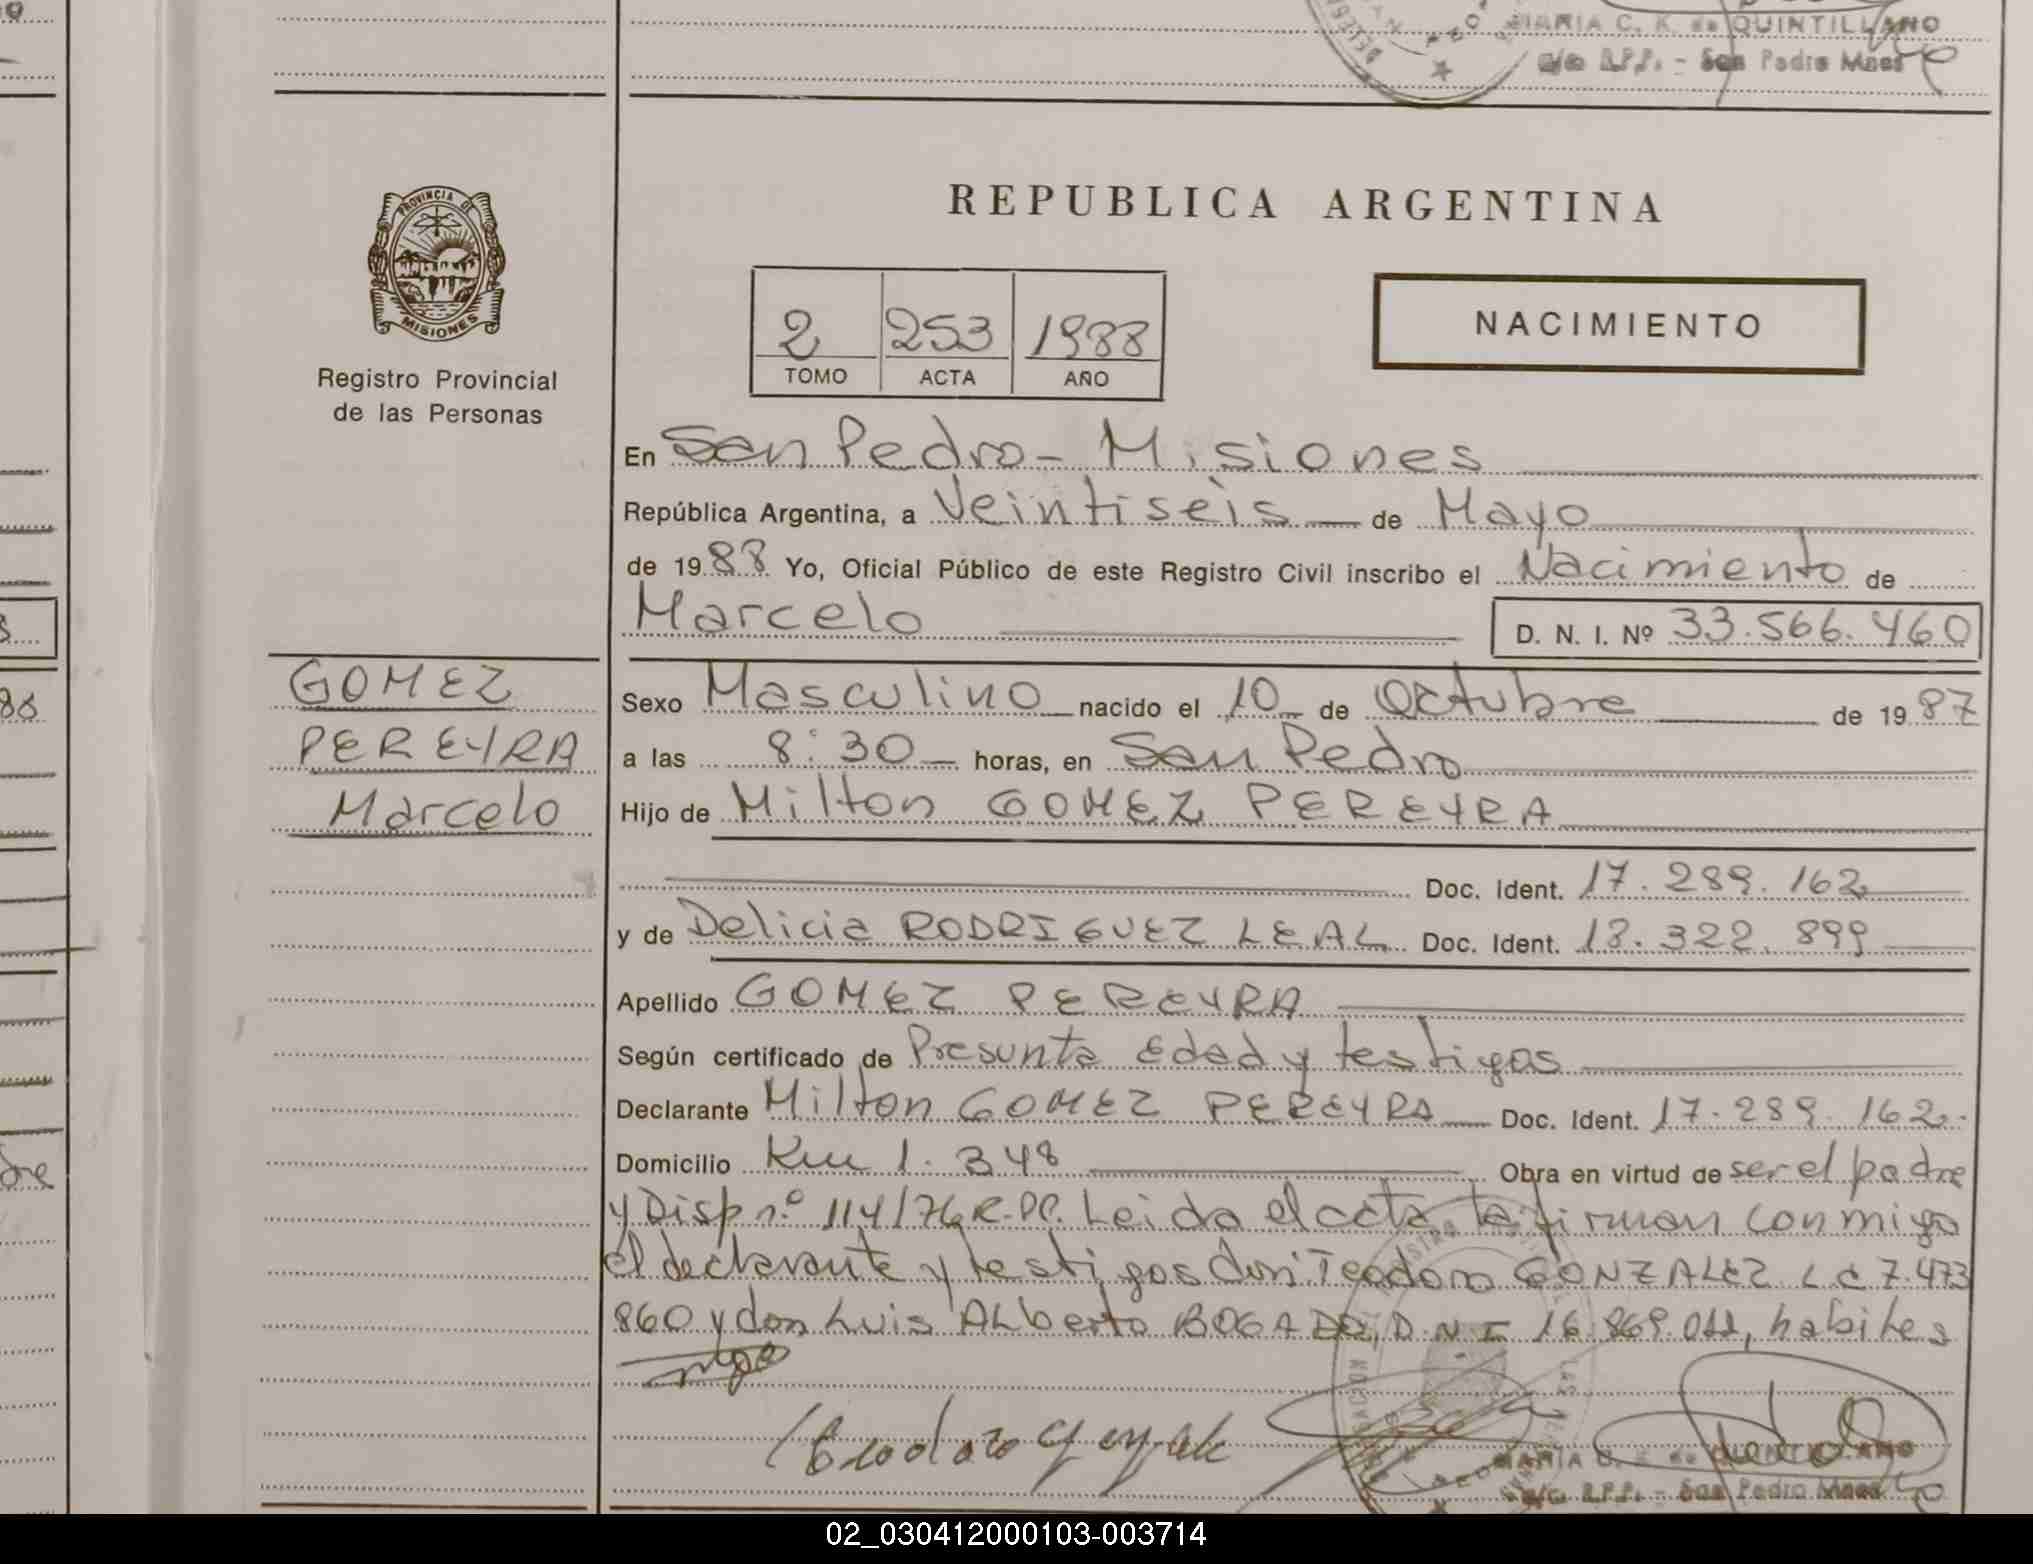 MARIA C. K. de QUINTILLANO
a/c R.P.P. - San Pedro Mnes
PROVINCIA DE
MISIONES
Registro Provincial
de las Personas
REPUBLICA ARGENTINA
2 253 1988
TOMO ACTA AÑO
NACIMIENTO
En San Pedro - Misiones
República Argentina, a Veintiseis de Mayo
de 1988 Yo, Oficial Público de este Registro Civil inscribo el Nacimiento de
Marcelo D. N. I. Nº 33.566.460
GOMEZ
PEREYRA
Marcelo
Sexo Masculino nacido el 10 de Octubre de 1987
a las 8:30 horas, en San Pedro
Hijo de Milton GOMEZ PEREYRA
Doc. Ident. 17.289.162
y de Delicia RODRIGUEZ LEAL Doc. Ident. 18.322.899
Apellido GOMEZ PEREYRA
Según certificado de Presunta edad y testigos
Declarante Milton GOMEZ PEREYRA Doc. Ident. 17.289.162
Domicilio Km 1.348 Obra en virtud de ser el padre
y Disp nº 114/76 R.P.P. Leida el acta la firman conmigo
el declarante y testigos don Teodoro GONZALEZ L E 7.473
860 y don Luis ALberto BOGADO, D.N.I 16.869.011, habiles
Teodoro Gonzalez
MARIA C. K. de QUINTILLANO
a/c R.P.P. - San Pedro Mnes
02_030412000103-003714